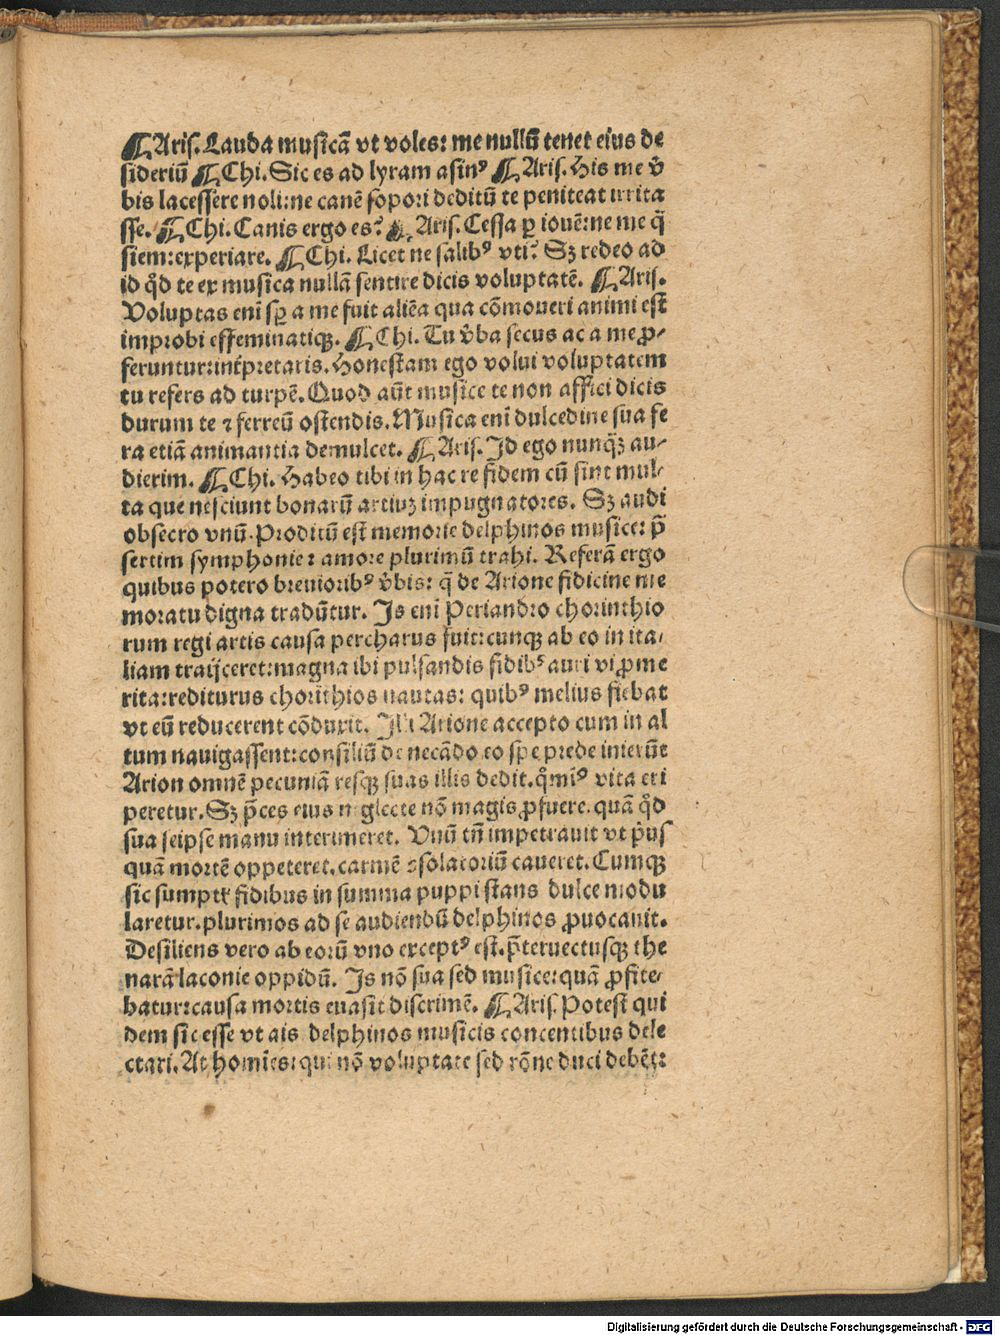 ¶Aris. Lauda musicã vt voles: me nullũ tenet eius de
sideriũ ¶Chi. Sic es ad lyram asinꝰ ¶Aris. His me v̾
bis lacessere noli: ne canẽ sopori deditũ te peniteat irrita
sse. ¶Chi. Canis ergo es? ¶Aris. Cessa ꝑ iouẽ: ne me q̃
siem: experiare. ¶Chi. Licet ne salibꝰ vti? Sꝫ redeo ad
id qͦd te ex musica nullã sentire dicis voluptatẽ. ¶Aris.
Voluptas eni̅ sꝑ a me fuit aliẽa qua cõmoueri animi est
improbi effeminatiqꝫ. ¶Chi. Tu v̾ba secus ac a me ꝓ-
feruntur: int̾pretaris. Honestam ego volui voluptatem
tu refers ad turpẽ. Quod aũt musice te non affici dicis
durum te ⁊ ferreũ ostendis. Musica eni̅ dulcedine sua fe
ra etiã animantia demulcet. ¶Aris. Id ego nunqᷓꝫ au-
dierim. ¶Chi. Habeo tibi in hac re fidem cũ sint mul-
ta que nesciunt bonarũ artiuꝫ impugnatores. Sꝫ audi
obsecro vnũ. Proditũ est memorie delphinos musice: p̃
sertim symphonie: amore plurimũ trahi. Referã ergo
quibus potero breuioribꝰ v̾bis: q̃ de Arione fidicine me
moratu digna tradũtur. Is eni̅ Periandro chorinthio
rum regi artis causa percharus fuit: cunqꝫ ab eo in ita-
liam traijceret: magna ibi pulsandis fidibꝰ auri vi ꝓme
rita: rediturus chori̅thios nautas: quibꝰ melius fiebat
vt eũ reducerent cõduxit. Illi Arione accepto cum in al
tum nauigassent: consiliũ de necãdo eo spe prede inierũt
Arion omnẽ pecuniã resqꝫ suas illis dedit. qͦmiꝰ vita eri
peretur. Sꝫ p̃ces eius neglecte nõ magis ꝓfuere. quã qͦd
sua seipse manu interimeret. Vnũ tñ impetrauit vt pͥus
quã mortẽ oppeteret. carmẽ ꝯsolatoriũ caueret. Cumqꝫ
sic sumptꝭ fidibus in summa puppi stans dulce modu
laretur. plurimos ad se audiendũ delphinos ꝓuocauit.
Desiliens vero ab eorũ vno exceptꝰ est. p̃teruectusqꝫ the
narã laconie oppidũ. Is nõ sua sed musice: quã ꝓfite-
batur: causa mortis euasit discrimẽ. ¶Aris. Potest qui
dem sic esse vt ais delphinos musicis concentibus dele
ctari. At homi̅es: qui nõ voluptate sed rõne duci debẽt:
Digitalisierung gefördert durch die Deutsche Forschungsgemeinschaft - DFG